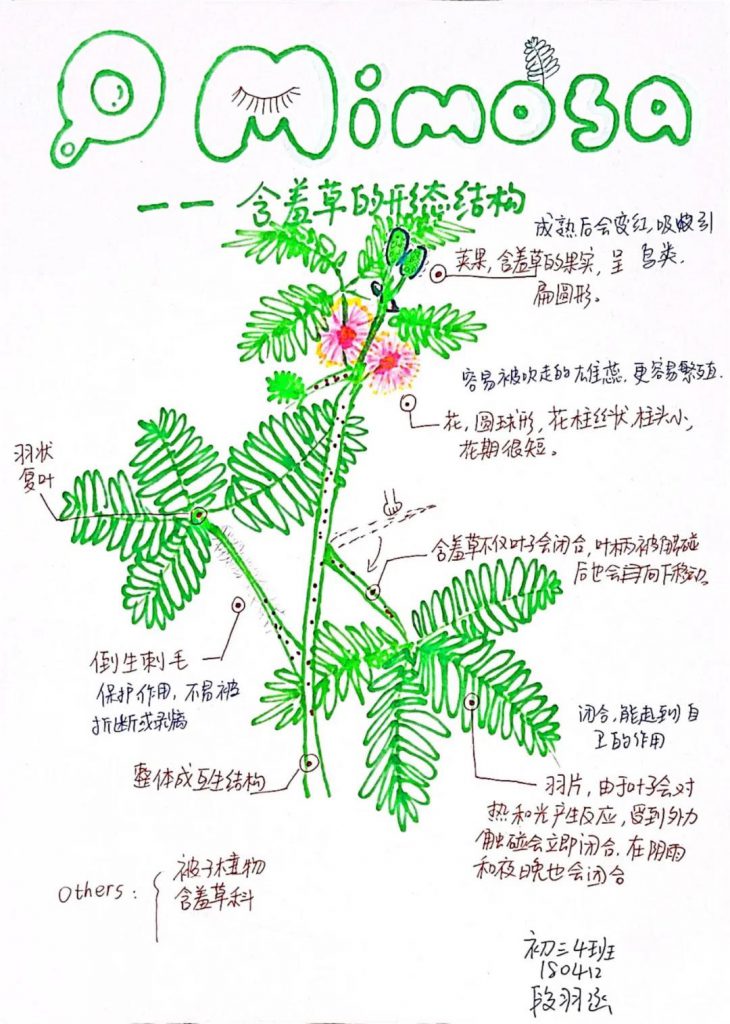 Mimosa
—— 含羞草的形态结构
成熟后会变红,吸引
鸟类.
荚果,含羞草的果实,呈
扁圆形。
容易被吹走的雄蕊,更容易繁殖.
花,圆球形,花柱丝状,柱头小,
花期很短。
羽状
复叶
含羞草不仅叶子会闭合,叶柄被触碰
后也会向下移动。
倒生刺毛
保护作用,不易被
折断或
整体成互生结构
闭合,能起到自
卫的作用
羽片,由于叶子会对
热和光产生反应,受到外力
触碰会立即闭合.在阴雨
和夜晚也会闭合
Others:
被子植物
含羞草科
初三4班
180412
段羽